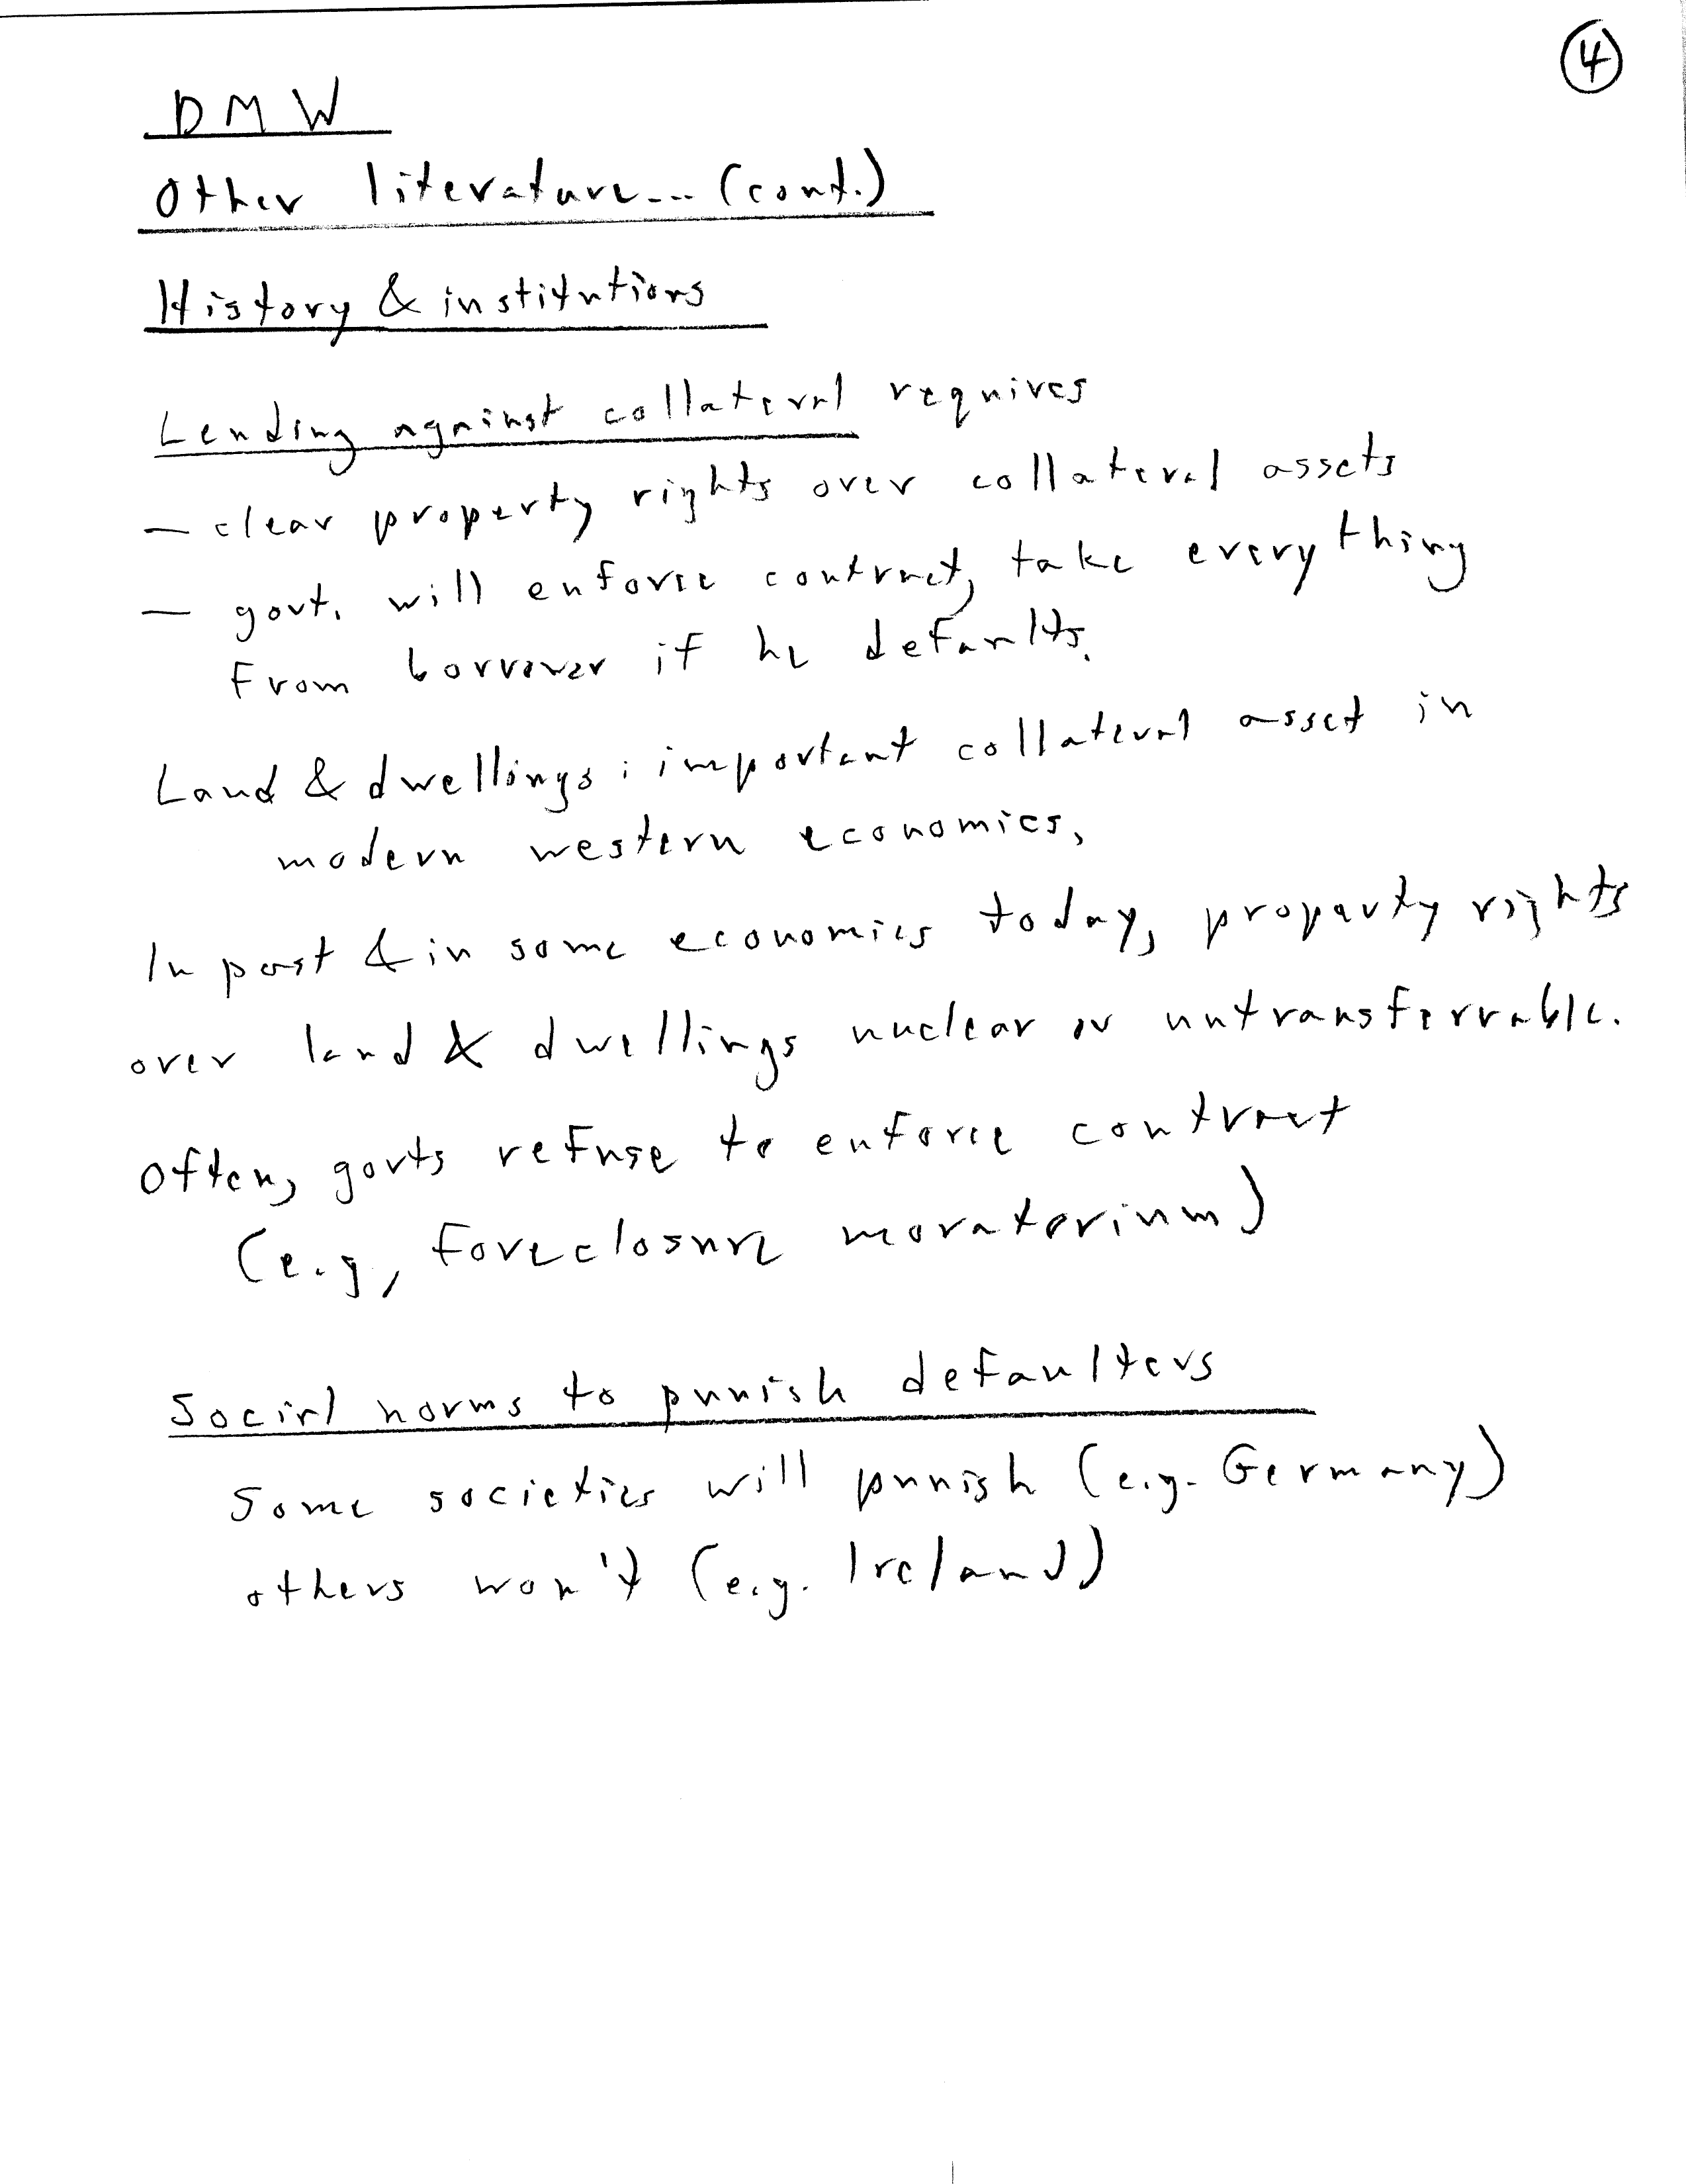 4
DMW
Other literature... (cont.)
History & institutions
Lending against collateral requires
— clear property rights over collateral assets
— govt. will enforce contract, take everything
from borrower if he defaults.
Land & dwellings: important collateral asset in
modern western economies,
In past & in some economies today, property rights
over land & dwellings unclear or untransferrable.
Often, govts refuse to enforce contract
(e.g., foreclosure moratorium)
Social norms to punish defaulters
Some societies will punish (e.g. Germany)
others won't (e.g. Ireland)